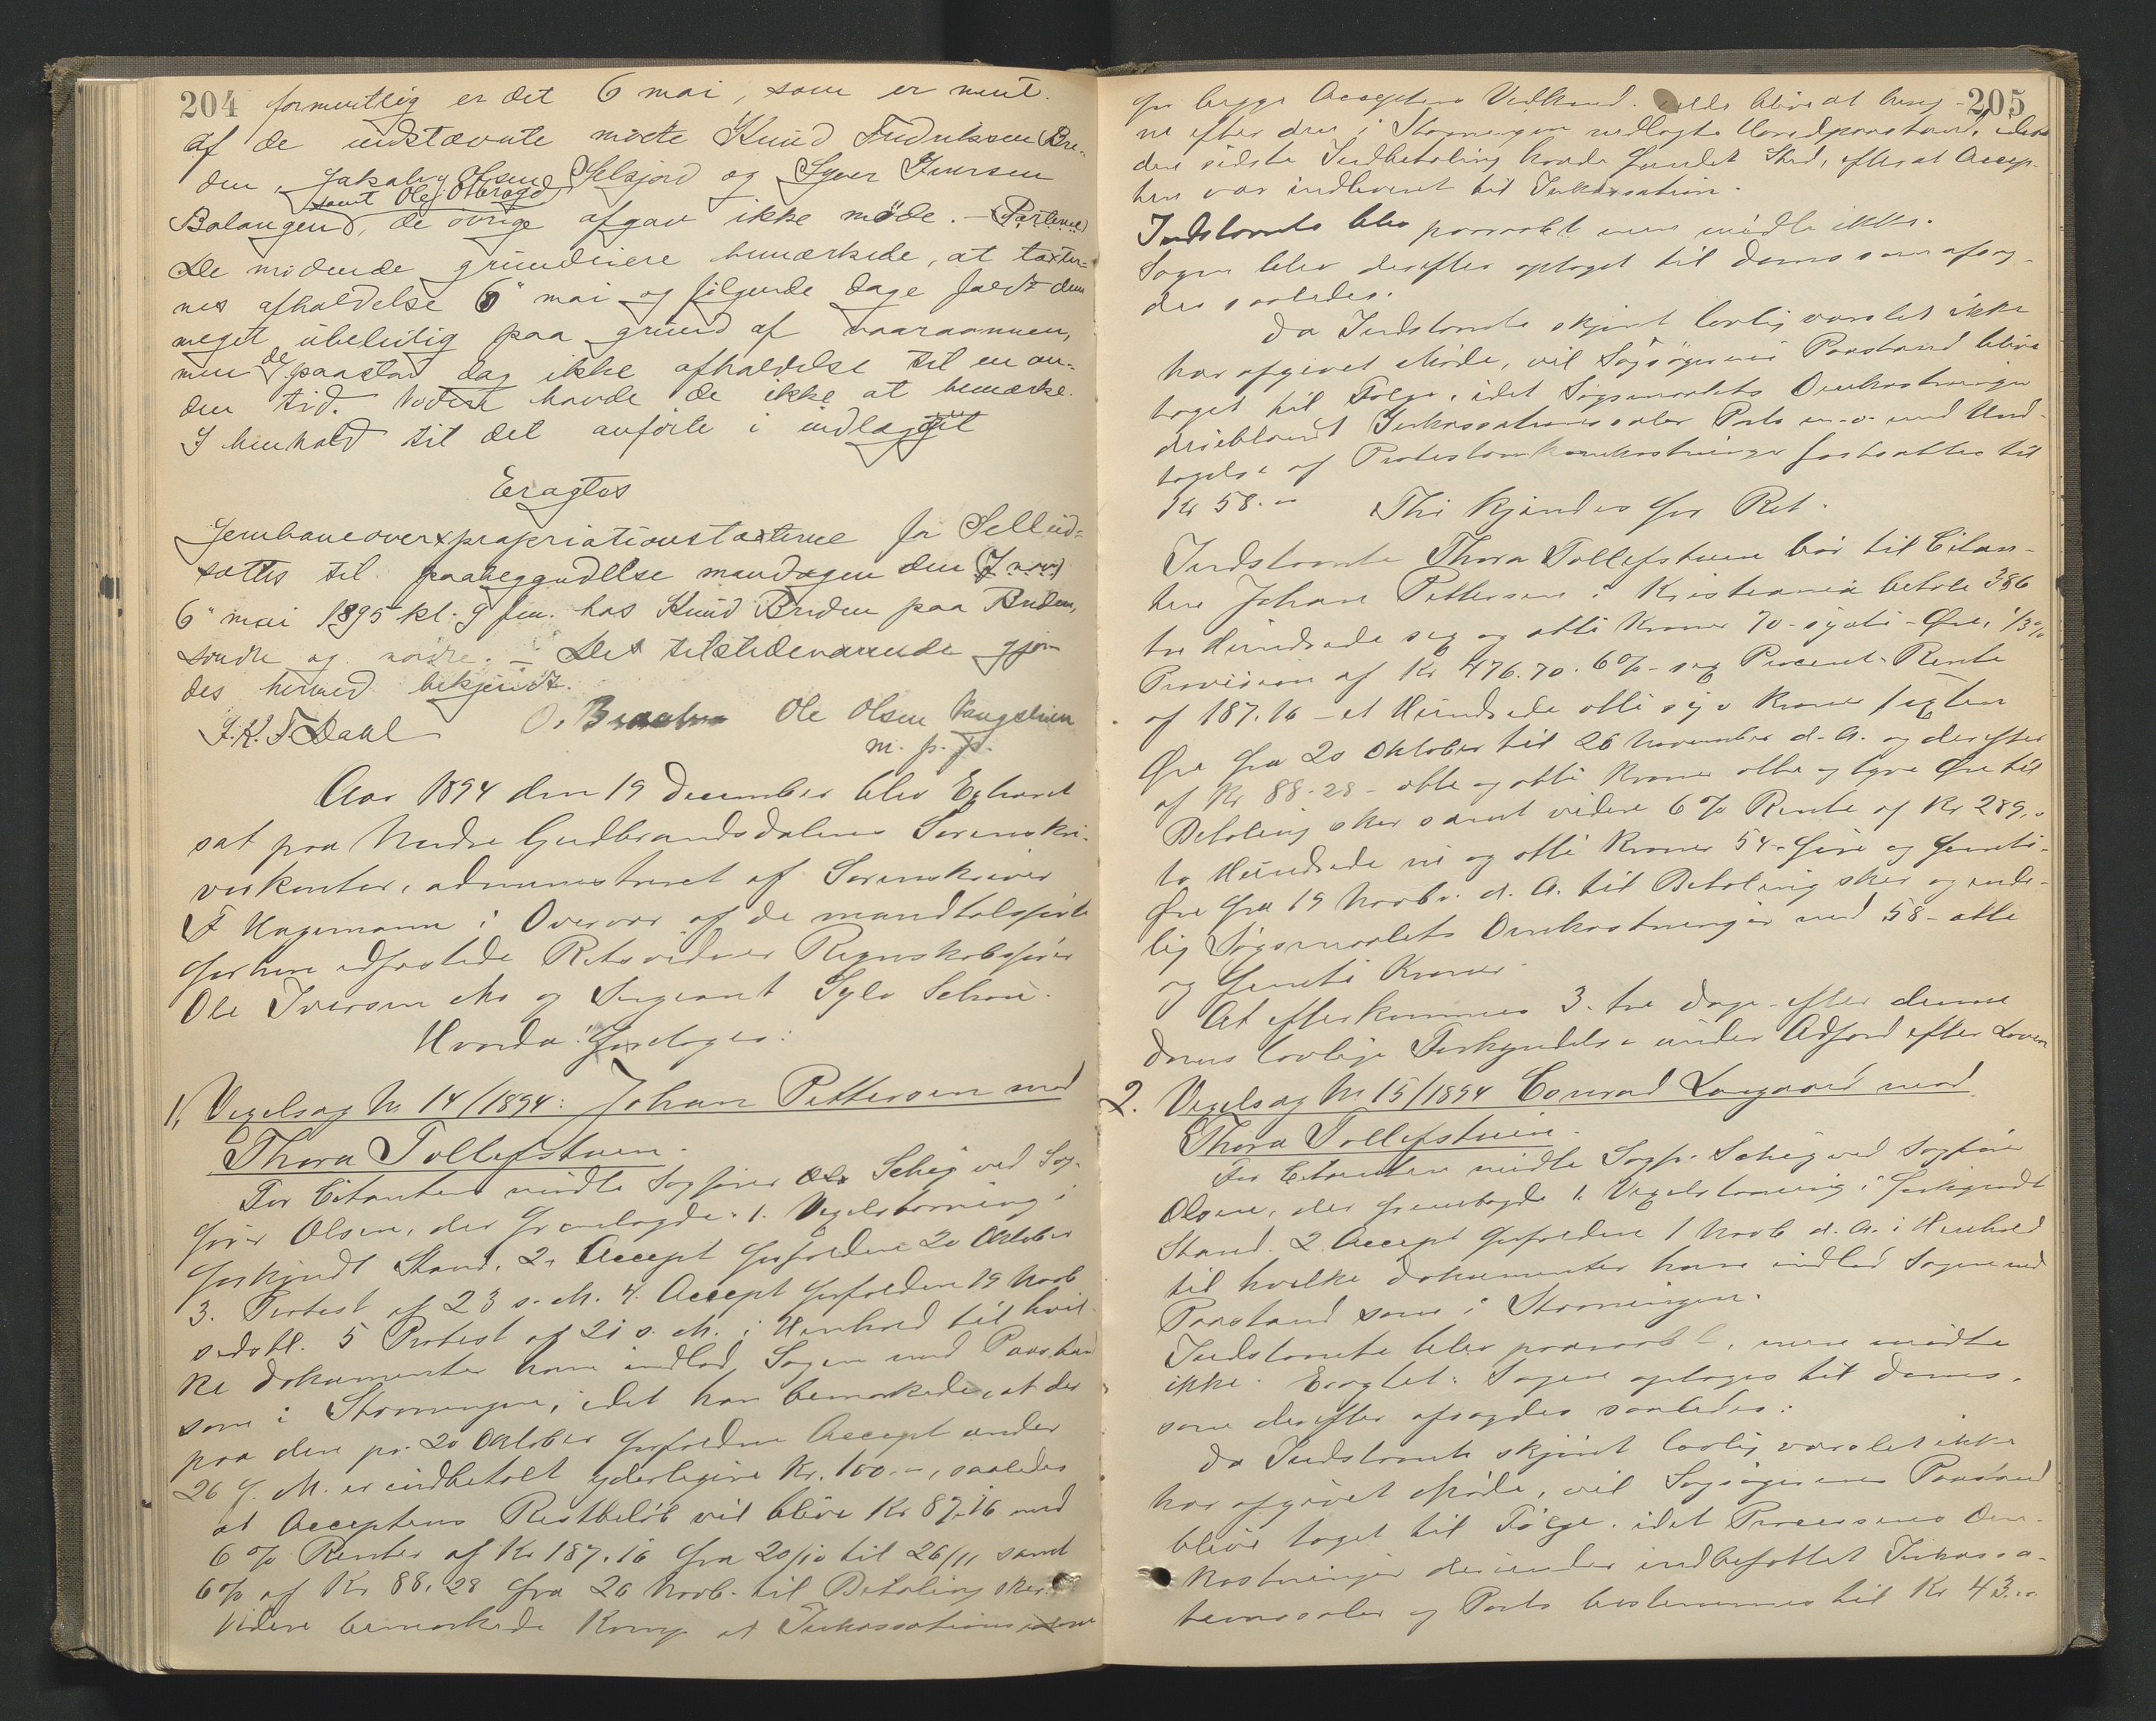 204 formentlig er det 6 mai, som er ment.
af de indstævnte mødte Knud Fredriksen Bre-
den, Jakob Olsen Selsjord og Syver Iversen
samt Ole
Balangen, de øvrige afgav ikke møde. — (Parterne)
De mødende grundeiere bemærkede, at taxter-
nes afholdelse 6" mai og følgende dage faldt dem
meget ubeleilig paa grund af vaaraannen,
men de paastod dog ikke afholdelse til en an-
den tid. havde de ikke at bemærke.
I henhold til det anførte i indlægget
Eragtes
Jernbaneexpropriationstaxterne for Sell ud-
sættes til paabegyndelse mandagen den
6" mai 1895 kl. 9 fm. hos Knud Breden paa Breden,
søndre og nordre. — Det tilstedeværende gjør-
des hermed bekjendt.
J. K. F. Dahl O. Braaten Ole Olsen Vangstuen
m. p. p.
Aar 1894 den 19 December blev Extraret
sat paa Nordre Gudbrandsdalens Sorenskri-
verkontor, administreret af Sorenskriver
F Hagemann i Overvær af de mandtalsførte
forhen edfæstede Retsvidner Regnskabsfører
Ole Iversen Mo og Sergeant Sylv. Schou.
Hvorda foretoges:
1, Vexelsag No 14/1894: Johan Pettersen mod
Thora Tollefstuen.
For Citanten mødte Sagfører Schig ved Sag-
fører Olsen, der fremlagde: 1. Vexelstævning i
forkyndt Stand. 2. Accept forfalden 20 Oktober
3. Protest af 23 s. M. 4. Accept forfalden 19 Novb
sidstl. 5 Protest af 21 s. M. i Henhold til hvil-
ke Dokumenter han indlod Sagen med Paastand
som i Stævningen, idet han bemærkede, at der
paa den pr. 20 Oktober forfaldne Accept under
26 f. M. er indbetalt yderligere Kr. 100.—, saaledes
at Acceptens Restbeløb vil blive Kr 87.16 med
6 % Renter af Kr 187.16 fra 20/10 til 26/11 samt
6 % af Kr 88.28 fra 26 Novb. til Betaling sker.
Videre bemærkede Komp. at Inkassations
205
for begge Accepters Vedkommende. vilde blive at bereg-
ne efter den i Stævningen nedlagte Hovedpaastand, idet
den sidste Indbetaling havde fundet Sted, efterat Accep-
ten var indleveret til Inkassation.
Indstævnte blev paaraabt men mødte ikke.
Sagen blev derefter optaget til Doms som afsag-
des saaledes:
Da Indstævnte skjønt lovlig varslet ikke
har afgivet Møde, vil Sagsøgerens Paastand blive
taget til Følge, idet Søgsmaalets Omkostninger
deriblandt Inkassationssalær Porto m. v. med Und-
tagelse af Protestomkostninger fastsættes til
Kr 58.— Thi kjendes for Ret.
Indstævnte Thora Tollefstuen bør til Citan-
ten Johan Pettersen i Kristiania betale 386
tre Hundrede sex og otti Kroner 70 - sytti - Øre, 1/3 %
Provision af Kr 476.70. 6 % - sex Procent - Rente
af 187.16 - et Hundrede otti syv Kroner sexten
Øre fra 20 Oktober til 26 November d. A. og derefter
af Kr 88.28 - otte og otti Kroner otte og tyve Øre til
Betaling sker samt videre 6 % Rente af Kr 289.
to Hundrede ni og otti Kroner 54 - fire og femti -
Øre fra 19 Novbr. d. A. til Betaling sker og ende-
lig Søgsmaalets Omkostninger med 58 - otte
og femti Kroner.
At efterkommes 3 - tre Dage - efter denne
Doms lovlige Forkyndelse under Adfærd efter Loven
2. Vexelsag No 15/1894 Conrad Langaard mod
Thora Tollefstuen.
For Citanten mødte Sagf. Schig ved Sagfører
Olsen, der fremlagde 1. Vexelstævning i forkyndt
Stand. 2. Accept forfalden 1 Novb d. A. i Henhold
til hvilke Dokumenter han indlod Sagen med
Paastand som i Stævningen.
Indstævnte blev paaraabt, men mødte
ikke. Eragtet: Sagen optages til Doms,
som derefter afsagdes saaledes:
Da Indstævnte skjønt lovlig varslet ikke
har afgivet Møde, vil Sagsøgerens Paastand
blive taget til Følge, idet Processens Om-
kostninger derunder indbefattet Inkassa-
tionssalær og Porto bestemmes til Kr 43.—